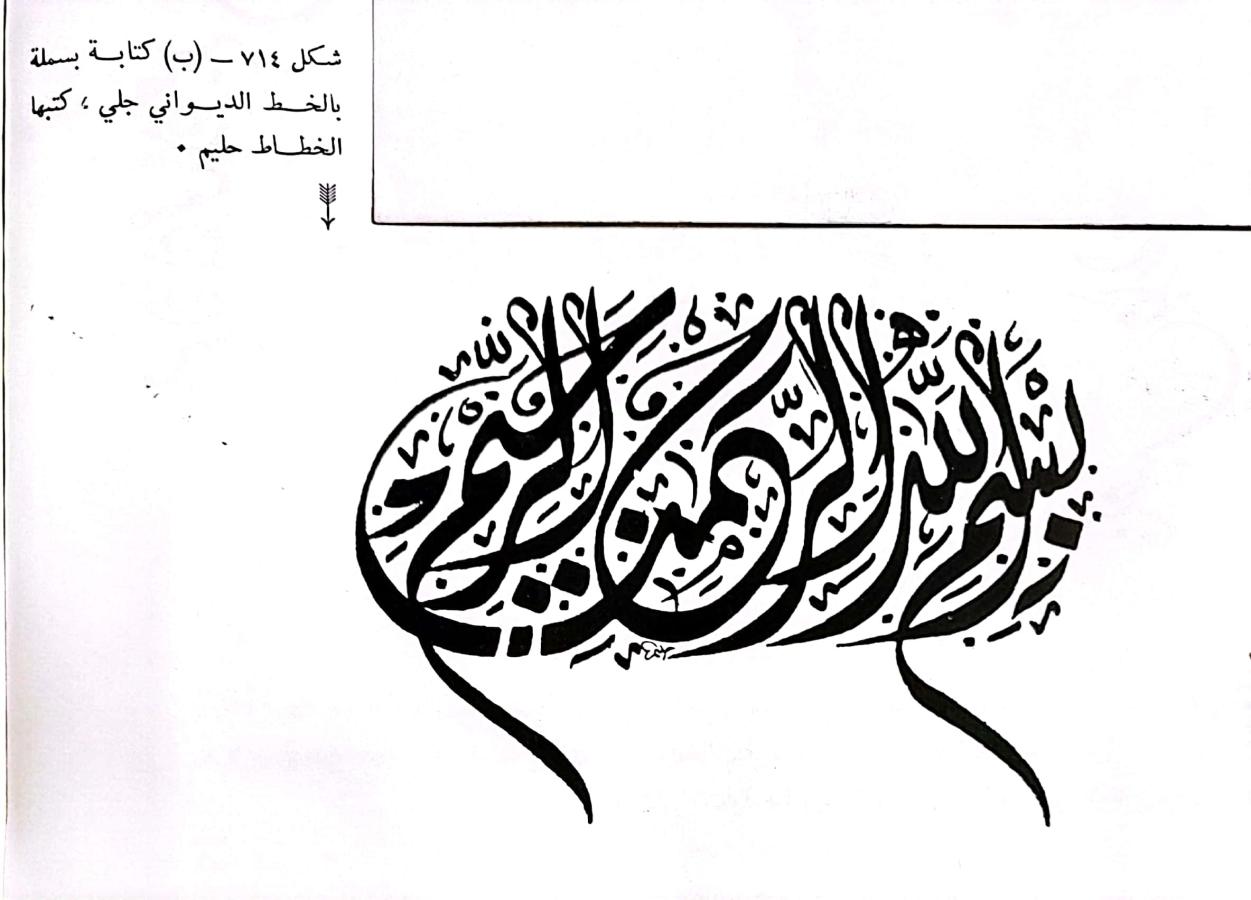 شكل ٧١٤ – (ب) كتابة بسملة
بالخط الديواني جلي ، كتبها
الخطاط حليم .
بسم الله الرحمن الرحيم